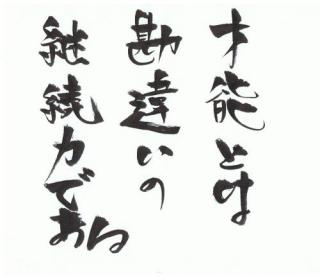 才能とは
勘違いの
継続力である